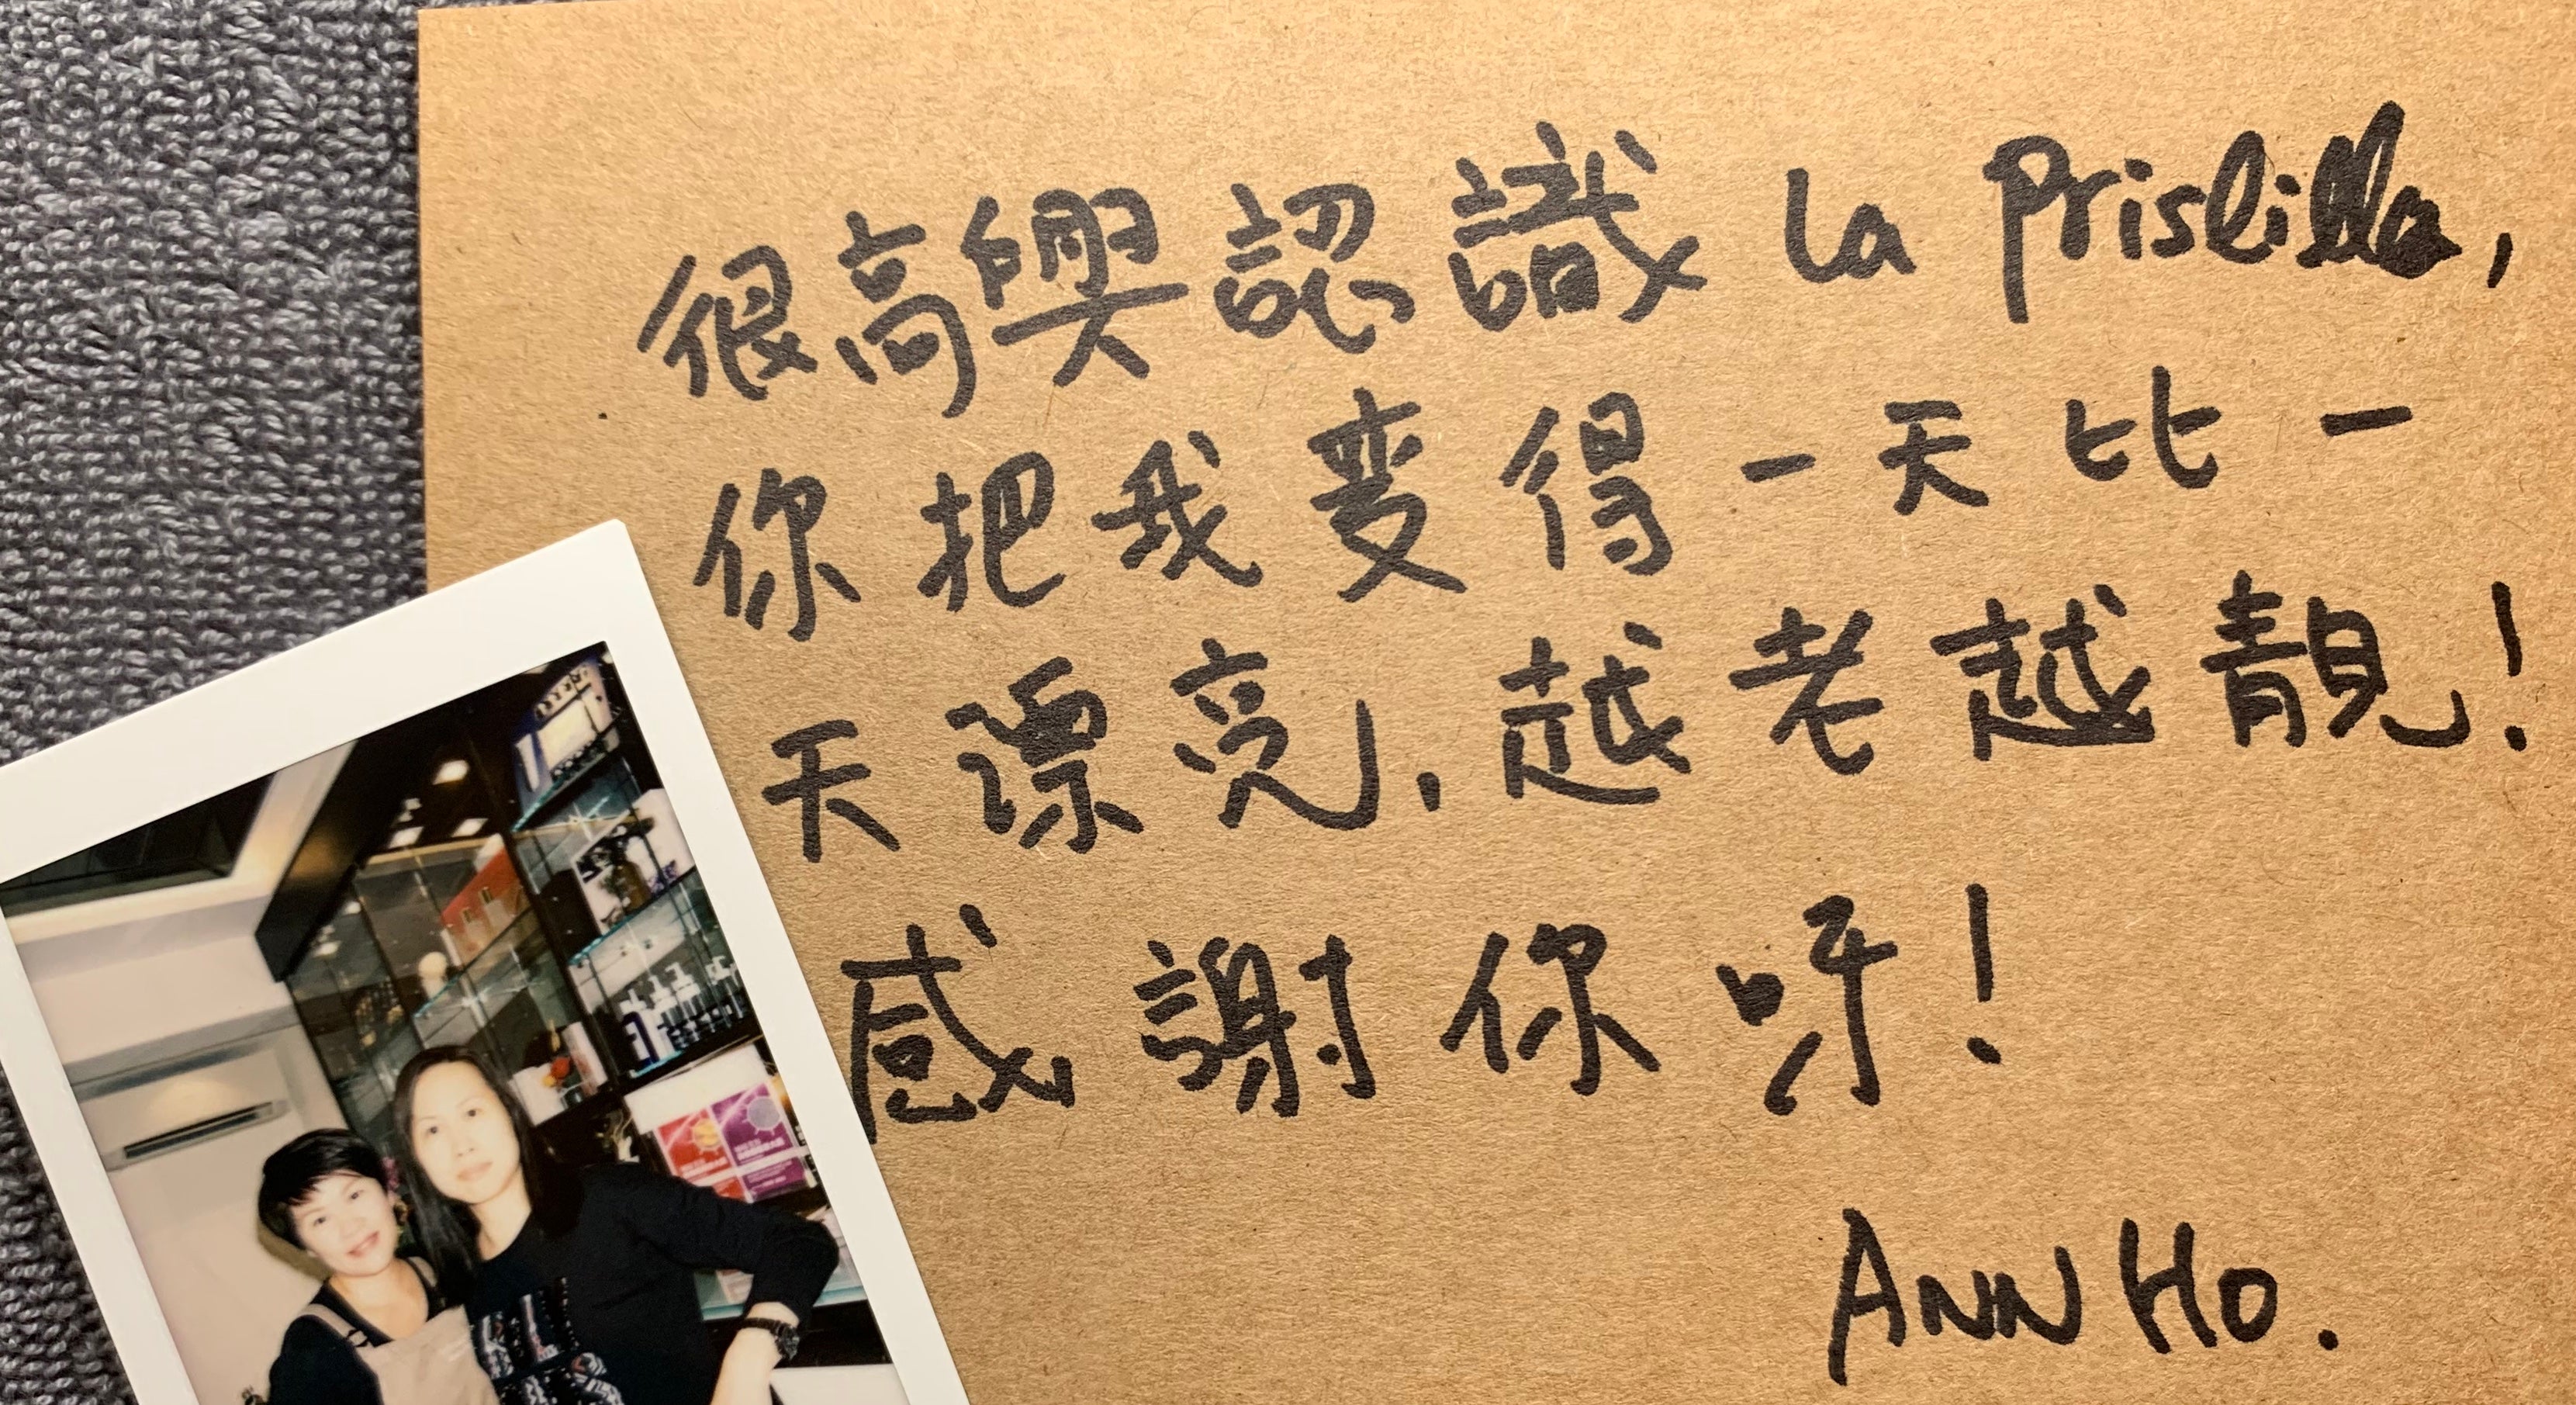 很高興認識 La Prislilla,
你把我变得一天比一
天漂亮,越老越靚!
感謝你呀!
ANN HO.